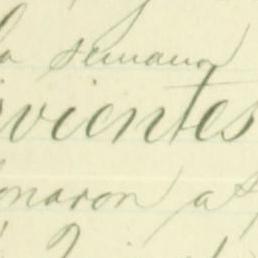 la semana
vientes
onaron a